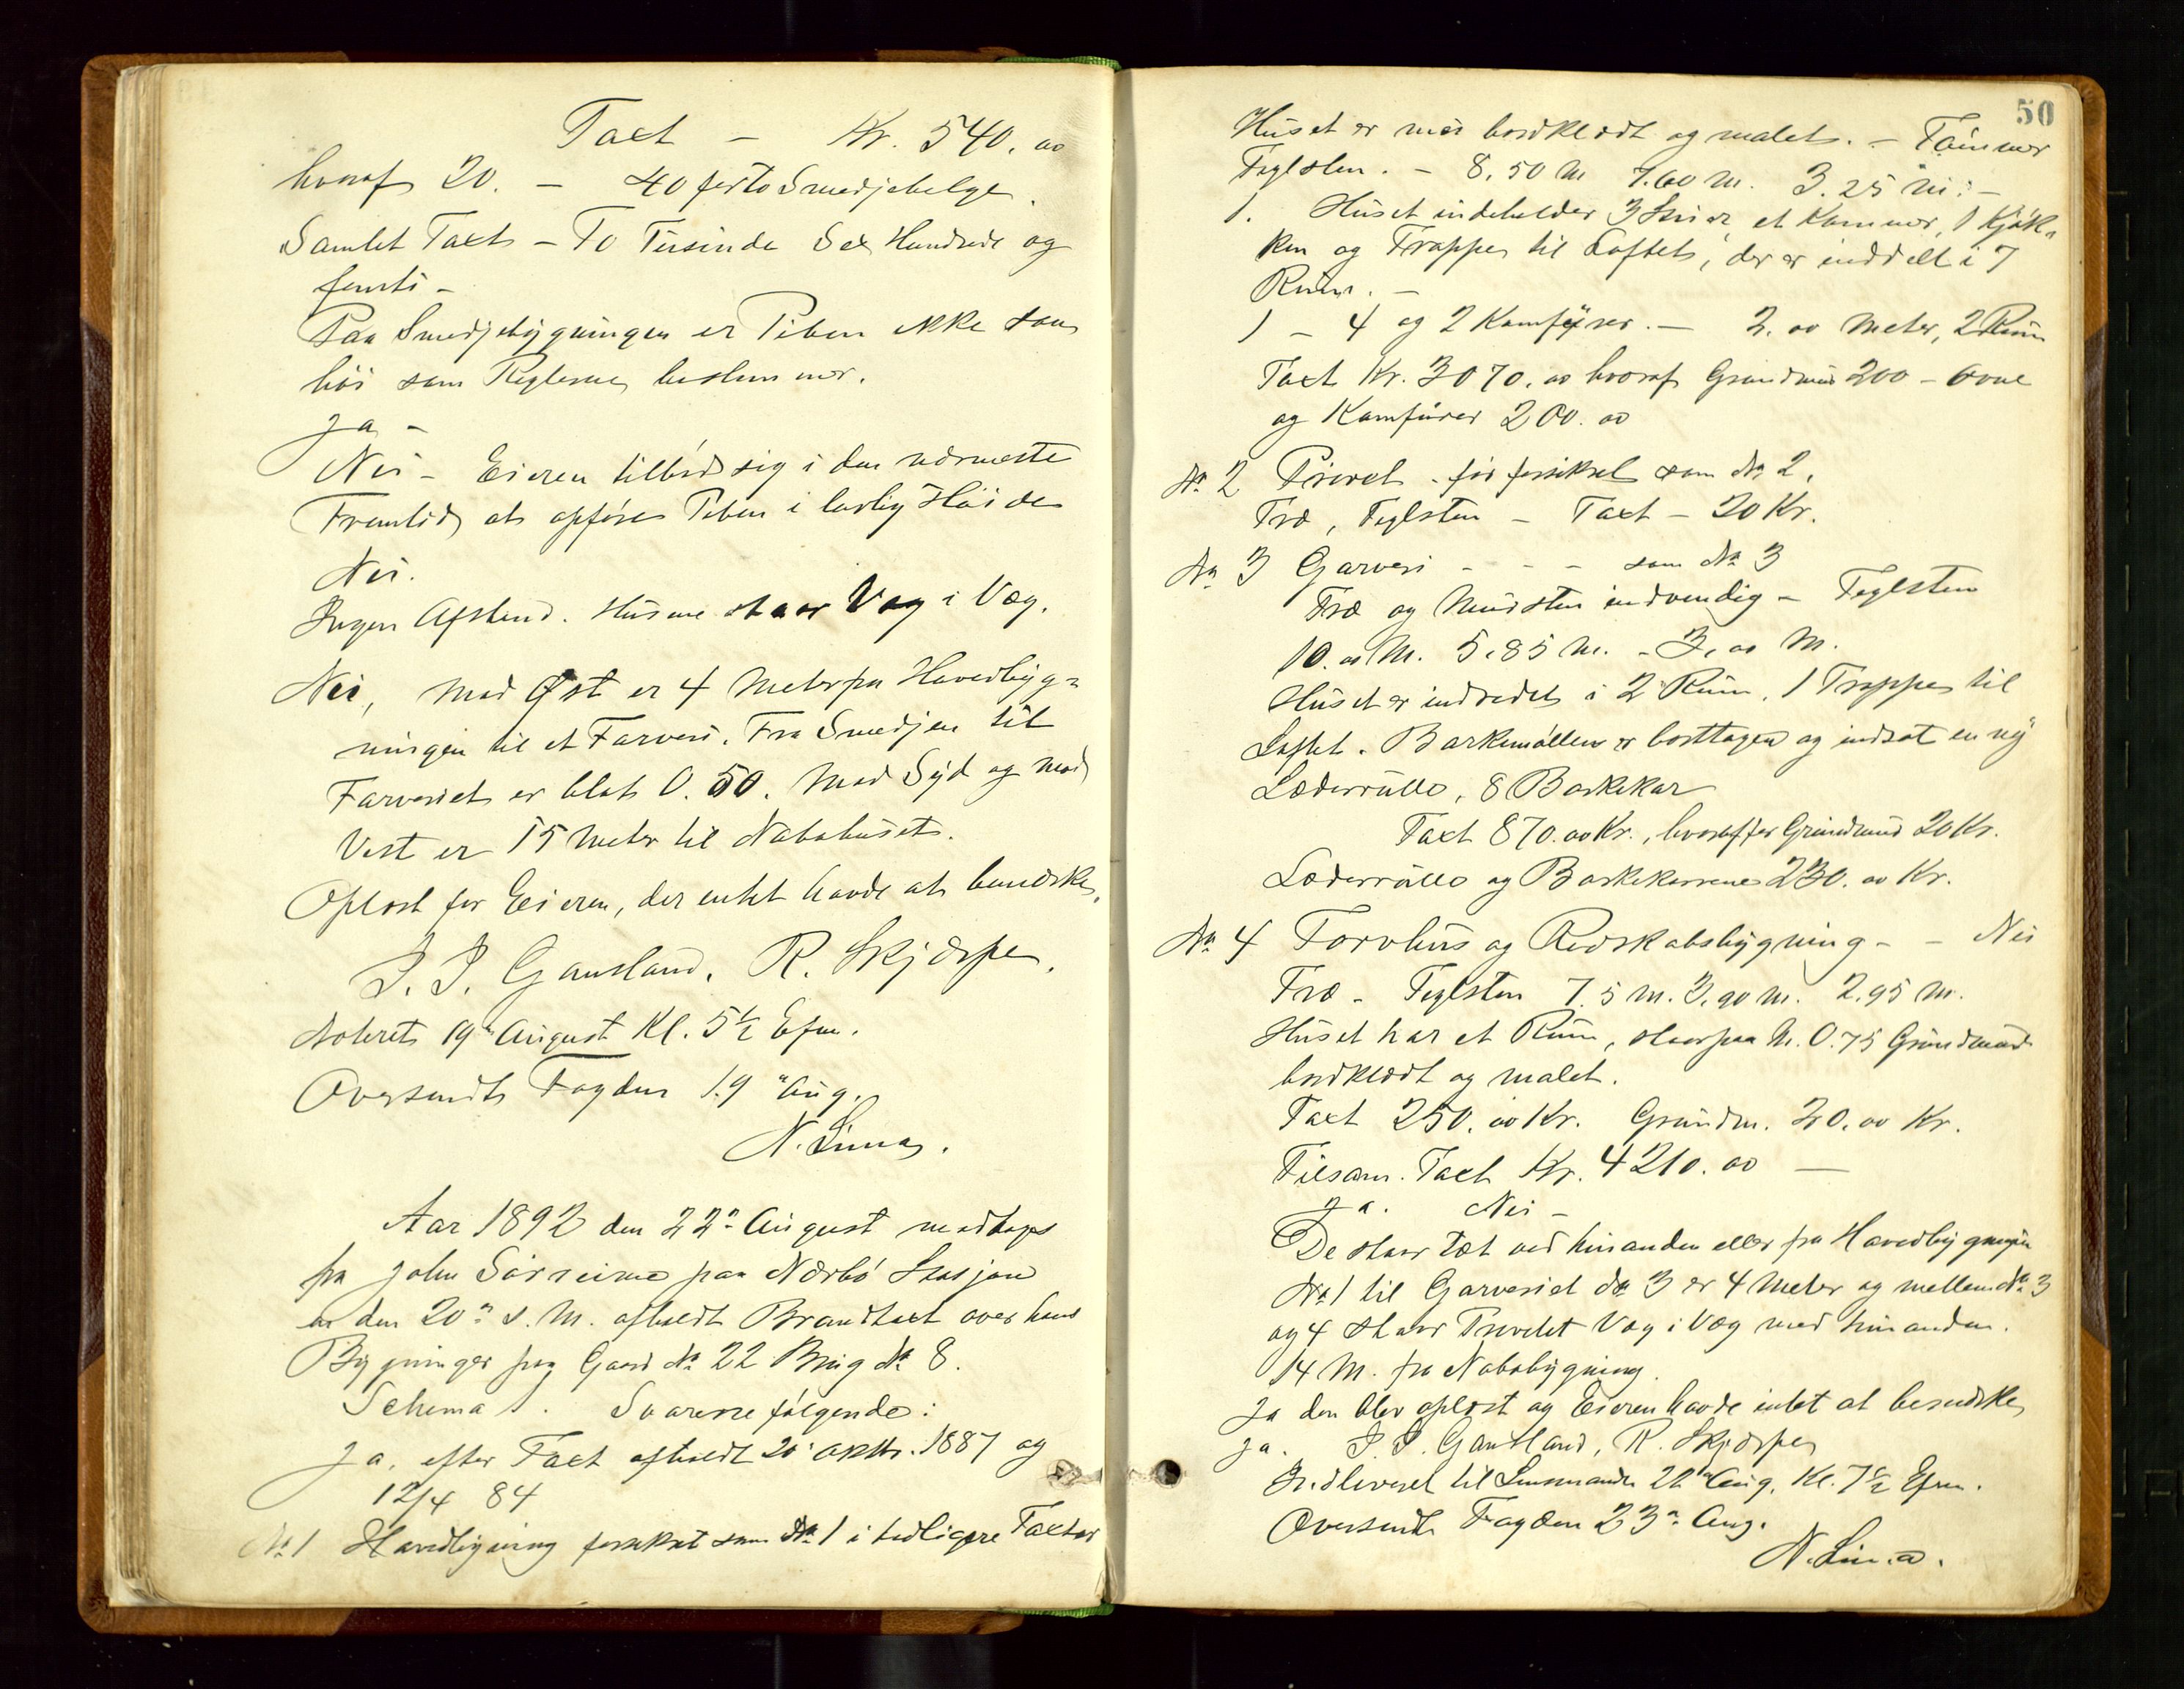 Taxt - Kr. 540. 00
hvoraf 20. - 40 for to Smedjebelge.
Samlet Taxt - To Tusinde Sex Hundrede og
femti -
Paa Smedjebygningen er Piben ikke saa
høi som Reglerne bestemmer.
Ja -
Nei - Eieren tilbød sig i den nærmeste
Fremtid at opføre Piben i lovlig Høide
Nei.
Ingen Afstand. Husene staar Væg i Væg.
Nei, mod Øst er 4 Meter fra Hovedbyg=
ningen til et Farveri. Fra Smedjen til
Farveriet er blot 0.50. Mod Syd og mod
Vest er 15 Meter til Nabohuset.
Oplæst for Eieren, der intet havde at bemærke.
J. J. Gausland. R. Skjærpe.
Noteret 19de August Kl. 5½ Efm.
Oversendt Fogden 19" Aug.
N. Lima.
Aar 1892 den 22" August modtages
fra John Sörreime paa Nærbö Stasjon
en den 20" d. M. afholdt Brandtaxt over hans
Bygninger paa Gaard No 22 Brug No 8.
Schema 1. Svarene følgende:
Ja, efter Taxt afholdt 20" Oktbr. 1887 og
12/4 84
No 1 Hovedbygning forsikret som No 1 i tidligere Taxter
50
Huset er nu bordklædt og malet. - Tømmer
Teglsten. - 8,50 M 7.60 M. 3.25 M. -
1. Huset indeholder 3 Stuer, et Kammer, 1 Kjøk=
ken og Trappe til Loftet, der er inddelt i 7
Rum. -
1 - 4 og 2 Komfyrer. - 2.00 Meter, 2 Rum
Taxt Kr. 3070.00 hvoraf Grundmur 200 - Ovne
og Komfurer 200.00
No 2 Privet - før forsikret som No 2.
Træ, Teglsten - Taxt - 20 Kr.
No 3 Garveri - - - som No 3
Træ og Mursten indvendig - Teglsten
10.00 M. 5.85 M. - 3.00 M.
Huset er indredet i 2 Rum, 1 Trappe til
Loftet. Barkemøllen er borttagen og indsat en ny
Læderrulle, 8 Barkekar
Taxt 870.00 Kr., hvoraf for Grundmur 20 Kr.
Læderrulle og Barkekarrene 230.00 Kr.
No 4 Torvhus og Redskabsbygning - - Nei
Træ - Teglsten 7.5 m. 3.90 m. 2.95 m.
Huset har et Rum, staar paa M. 0.75 Grundmur
bordklædt og malet.
Taxt 250.00 Kr. Grundm. 20.00 Kr.
Tilsam. Taxt Kr. 4210.00 —
Ja. Nei -
De staar tæt ved hinanden eller fra Hovedbygningen
No 1 til Garveriet No 3 er 4 Meter og mellem No 3
og 4 staar Privetet Væg i Væg med hinanden.
14 M. fra Nabobygning.
Ja den blev oplæst og Eieren havde intet at bemærke
Ja. J. J. Gausland, R. Skjærpe
Indleveret til Lensmanden 22" Aug. Kl. 7½ Efm.
Oversendt Fogden 23" Aug.
N. Lima.